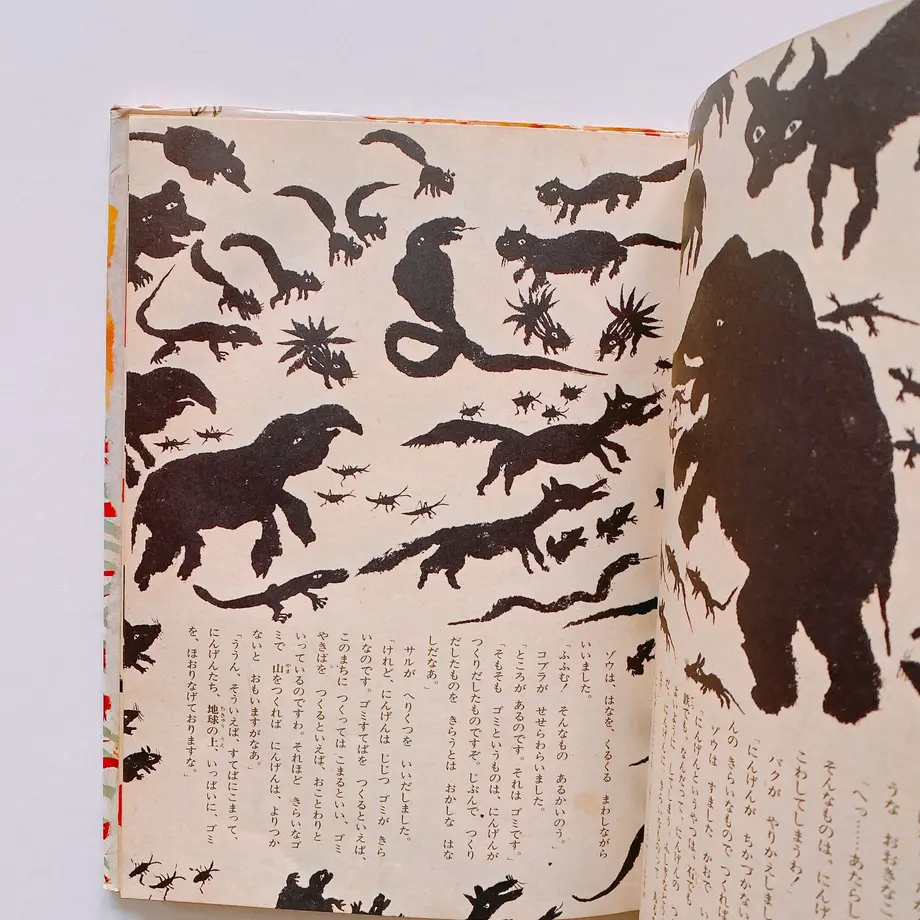 うな　おおきなこ
「へっ……あたらし
そんなものは、にんげ
こわしてしまうわ！
バクが　やりかえしまし
「にんげんが　ちかづかな
んの　きらいなもので、つくれば
ゾウは　すました　かおで
「にんげんというやつは、石でも
ゾウは、はなを、くるくる　まわしながら
いいました。
「ふふむ！　そんなもの　あるかいのう。」
コブラが　せせらわらいました。
「ところが　あるのです。それは　ゴミです。」
「そもそも　ゴミというものは、にんげんが
つくりだしたものですぞ。じぶんで　つくり
だしたものを　きらうとは　おかしな　はな
しだなあ。」
サルが　へりくつを　いいだしました。
「けれど、にんげんは　じじつ　ゴミが　きら
いなのです。ゴミすてばを　つくるといえば、
このまちに　つくっては　こまるといい、ゴミ
やきばを　つくるといえば、おことわりと
いっているのですわ。それほど　きらいなゴ
ミで　山をつくれば　にんげんは、よりつか
ないと　おもいますがなあ。」
「ううん、そういえば、すてばにこまって、
にんげんたち、地球の上、いっぱいに、ゴミ
を、ほおりなげておりますな。」